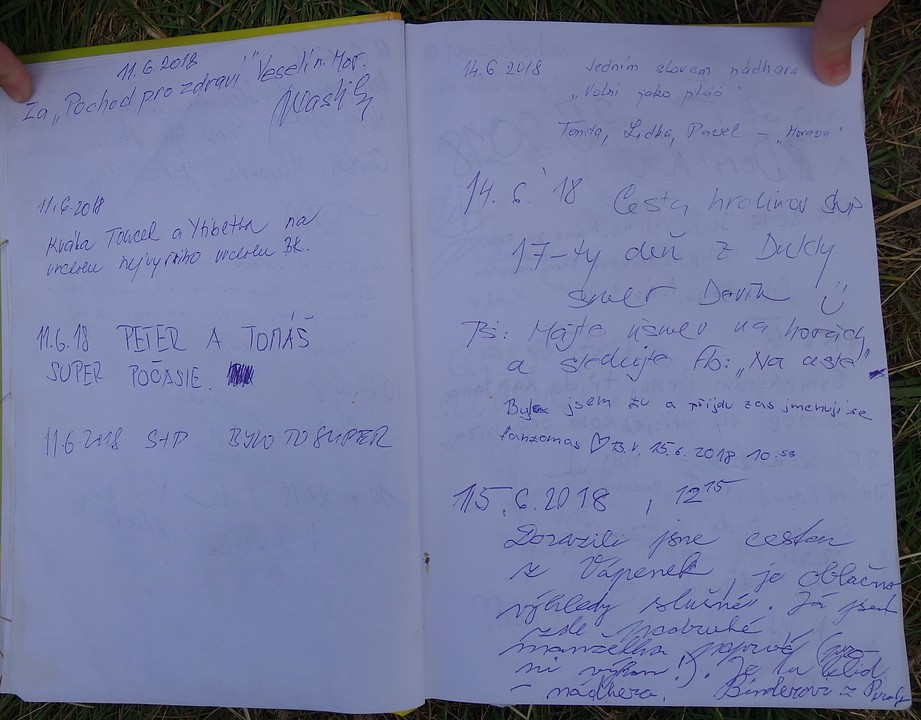 11.6.2018
Za „Pochod pro zdraví" Veselí n. Mor.
11.6.2018
na
vrcholu nejvyššího vrcholu BK.
11.6.18 PETER A TOMÁŠ
SUPER POČASIE.
11.6 2018 S+P BYLO TO SUPER
14.6 2018 Jedním slovem nádhera
„Volní jako ptáci"
Tonda, Lidka, Pavel – „Morava"
14.6.'18 Cesta hrdinov SNP
17-ty deň z Dukly
smer Devín
PS: Majte úsmev na horách
a sledujte Fb: „Na ceste"
Byla jsem zu a přijdu zas jmenuji se
fantomas ♡ B.V. 15.6.2018 10 53
15.6.2018, 12 15
Dorazili jsme cestou
z Vápenek, je oblačno
výhledy slušné. Já jsem
zde podruhé
manželka poprvé (prv-
ní výkon!). Je tu klid
– nádhera. Binderovi z